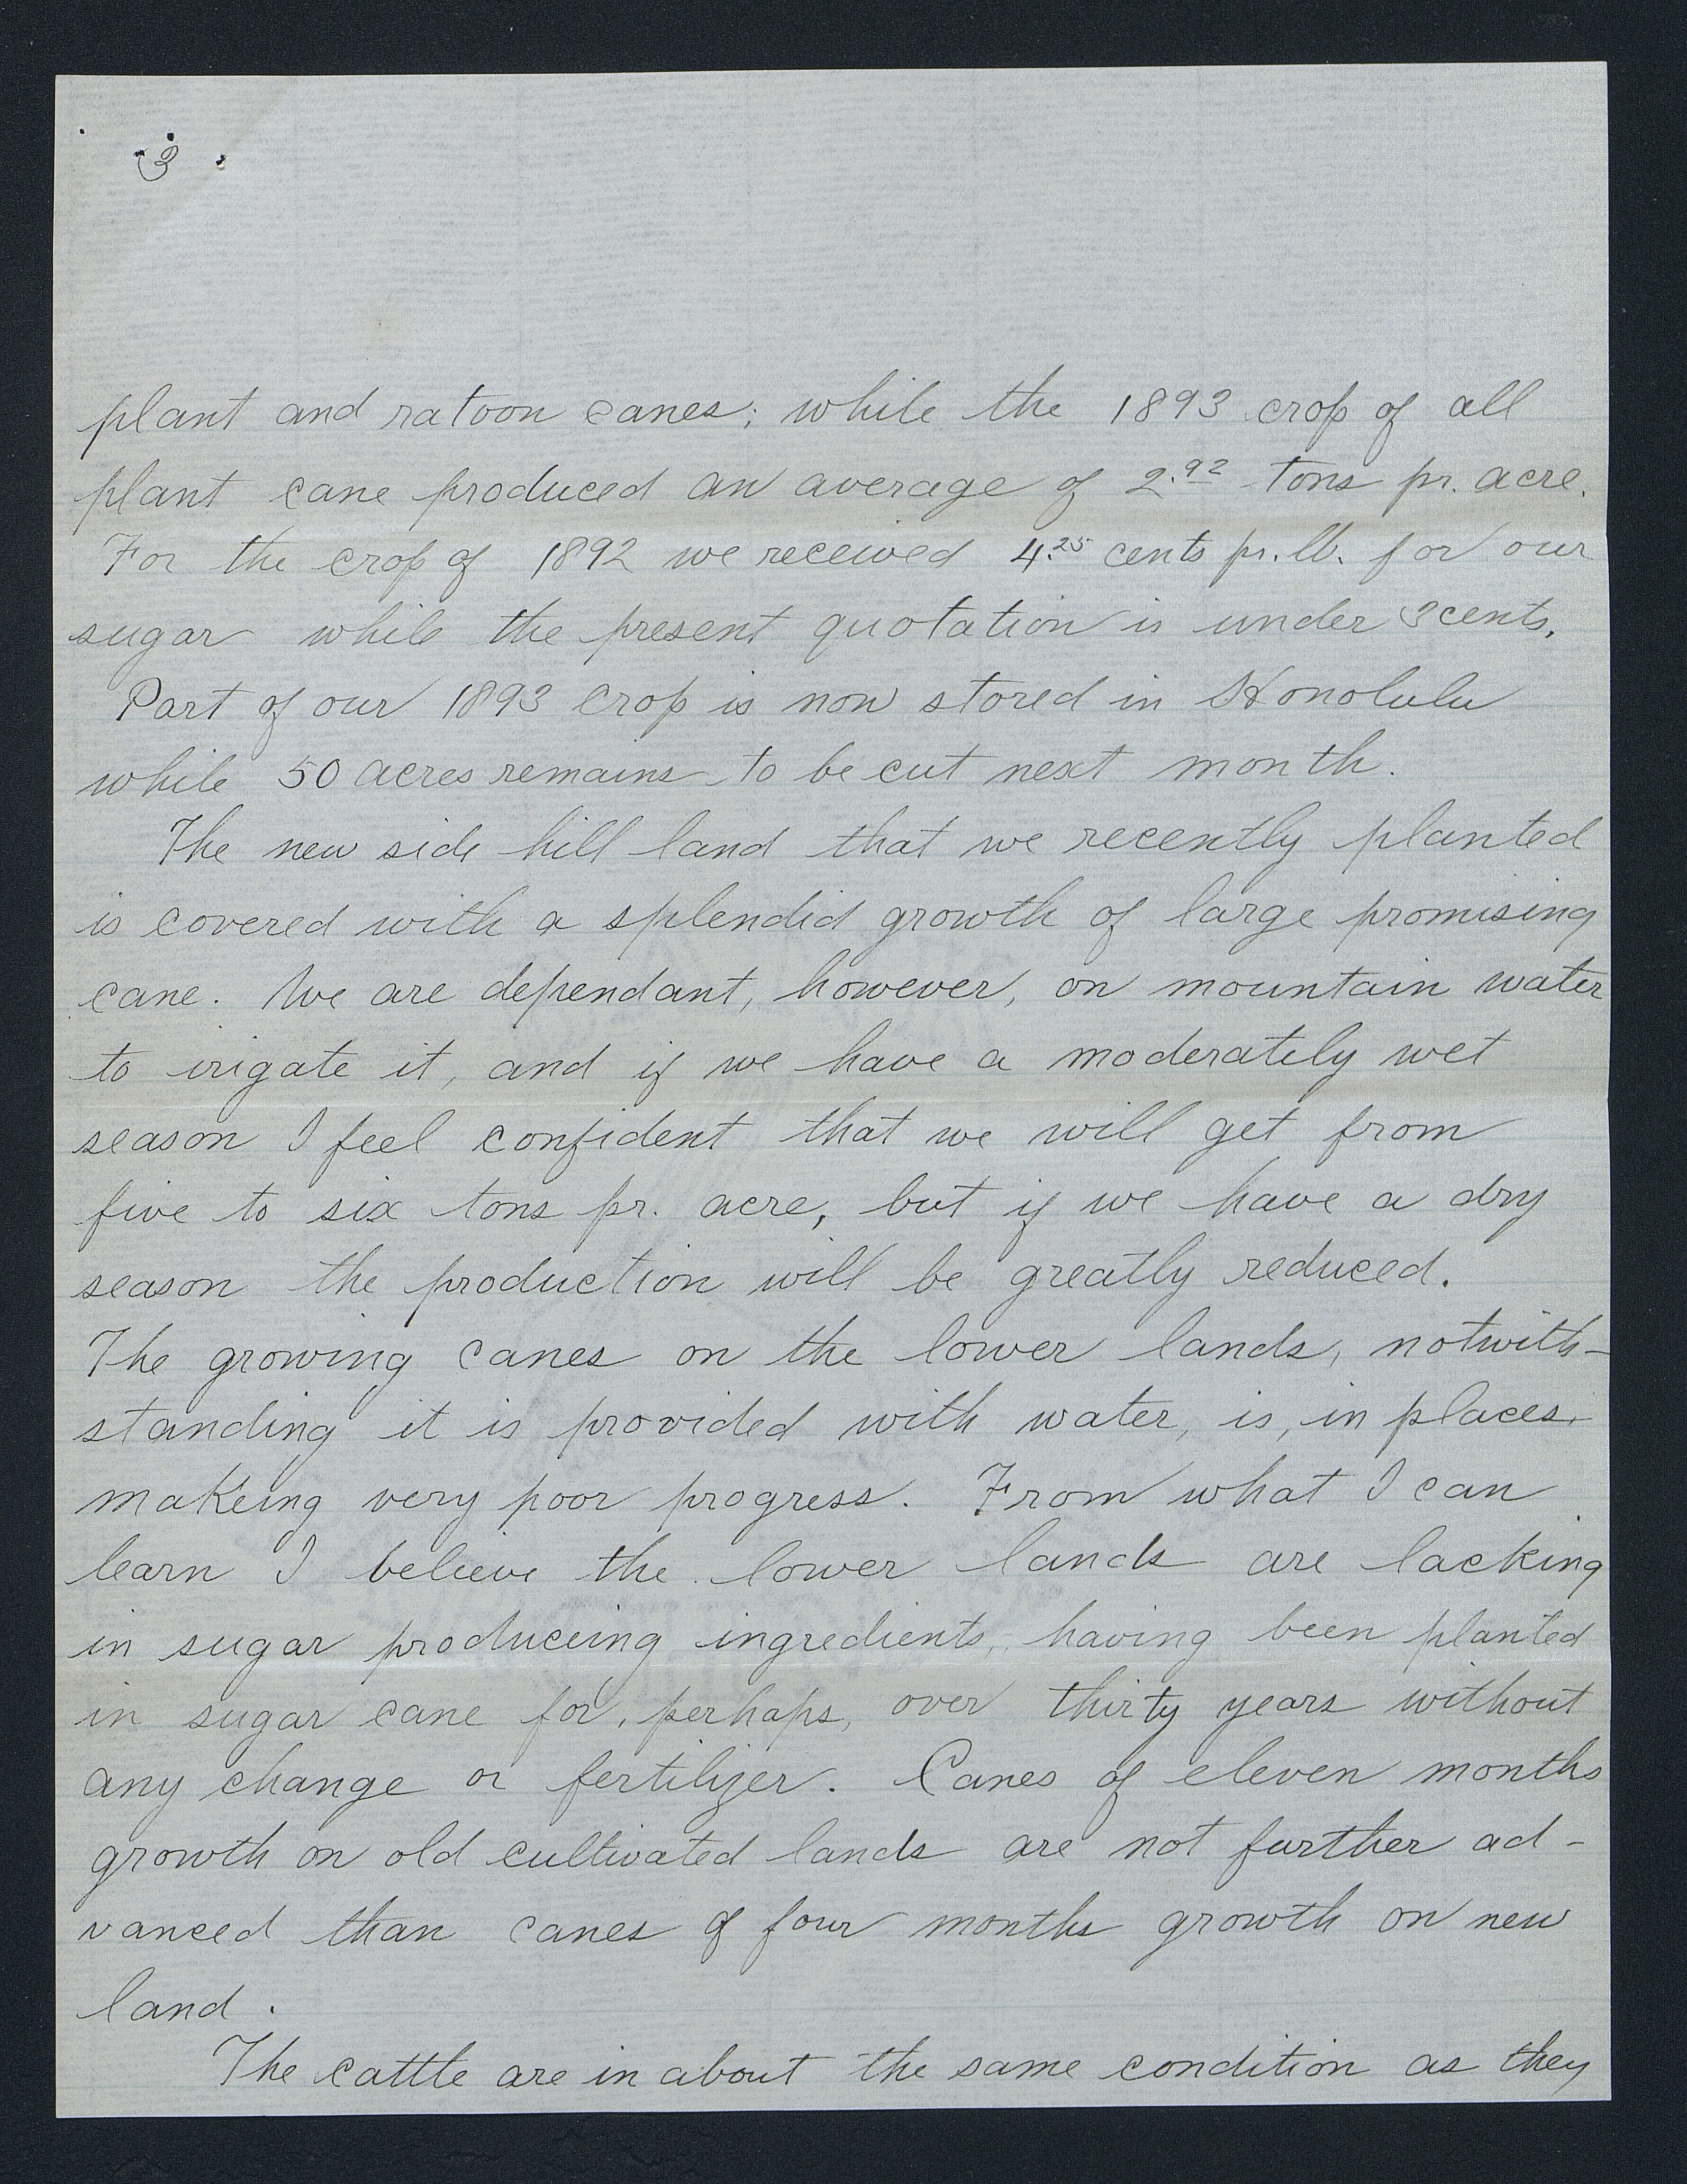 3
plant and ratoon canes; while the 1893 crop of all
plant cane produced an average of 2.92 tons pr. acre.
For the crop of 1892 we received 4.25 cents pr. lb. for our
sugar while the present quotation is under 3 cents.
Part of our 1893 crop is now stored in Honolulu
while 50 acres remains to be cut next month.
The new side hill land that we recently planted
is covered with a splendid growth of large promising
cane. We are dependant, however, on mountain water
to irigate it, and if we have a moderately wet
season I feel confident that we will get from
five to six tons pr. acre, but if we have a dry
season the production will be greatly reduced.
The growing canes on the lower lands, notwith-
standing it is provided with water, is, in places,
makeing very poor progress. From what I can
learn I believe the lower lands are lacking
in sugar produceing ingredients, having been planted
in sugar cane for, perhaps, over thirty years without
any change or fertilizer. Canes of eleven months
growth on old cultivated lands are not further ad-
vanced than canes of four months growth on new
land.
The cattle are in about the same condition as they